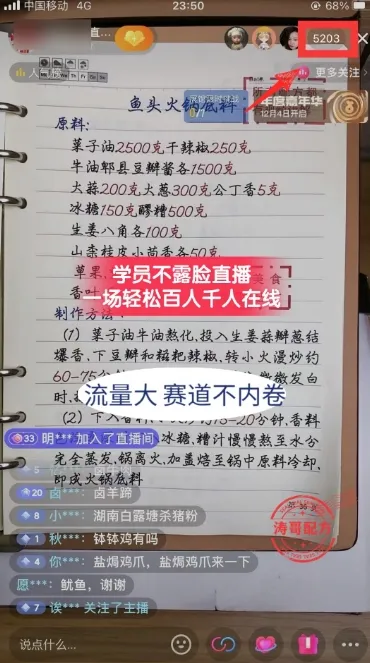 中国移动 4G
23:50
直...
5203
人气
更多关注 >
年度嘉年华
12月4日开启
鱼头火锅底料:
原料:
菜子油2500克干辣椒250克
牛油郫县豆瓣酱各1500克
大蒜200克大葱300克公丁香5克
冰糖150克醪糟500克
生姜八角各100克
山柰桂皮小茴香各50克
草果,
香叶
美食
学员不露脸直播
一场轻松百人千人在线
制作方法:
(1) 菜子油牛油熬化,投入生姜蒜瓣葱结
爆香,下豆瓣和糍粑辣椒,转小火漫炒约
60-75
微微发白
时,
流量大 赛道不内卷
(2) 下入香料
15-20分钟,香料
33 明*** 加入了直播间
冰糖,糟汁慢慢熬至水分
完全蒸发,锅离火,加盖焐至锅中原料冷却,
即成火锅底料
20 卤***:卤羊蹄
8 小***:湖南白露塘杀猪粉
1 秋***:钵钵鸡有吗
4 你***:盐焗鸡爪,盐焗鸡爪来一下
愿***:鱿鱼,谢谢
7 诶*** 关注了主播
第 36 页
涛哥配方
说点什么...